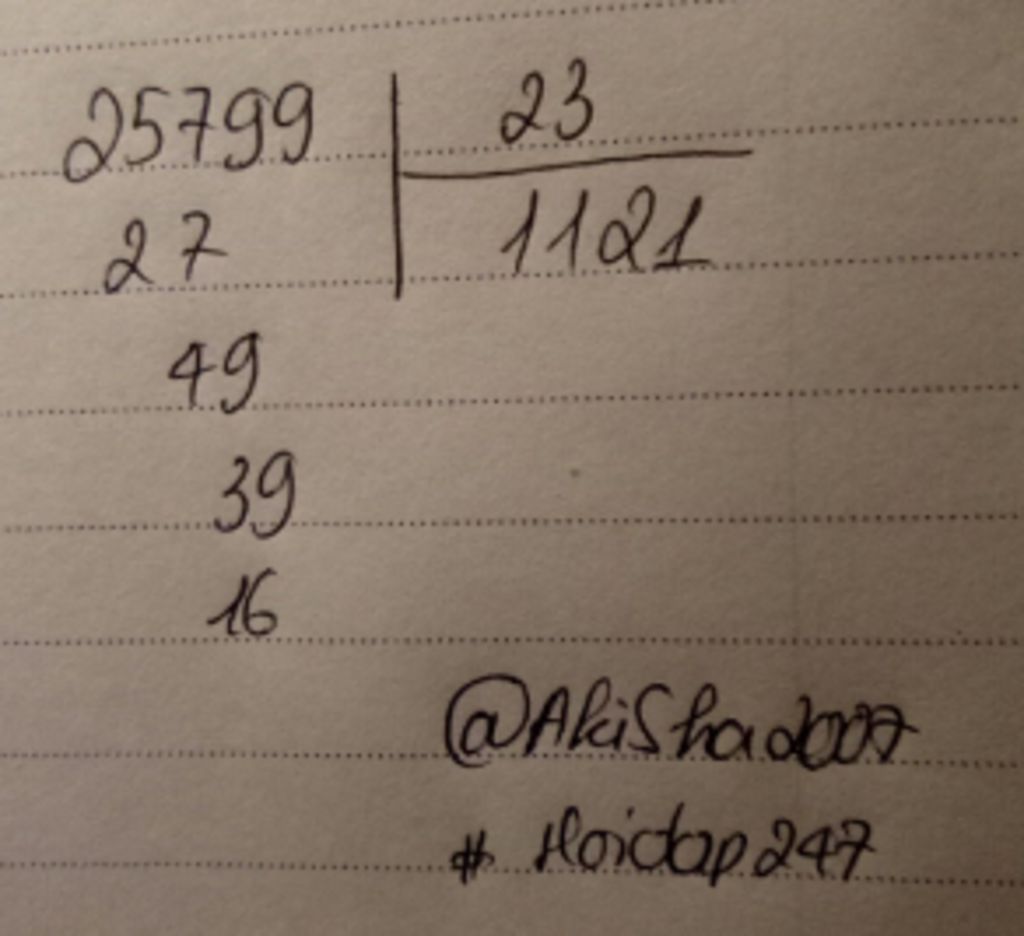 25799 23
27 1121
49
39
16
@AkiSha2007
# Hoidap247